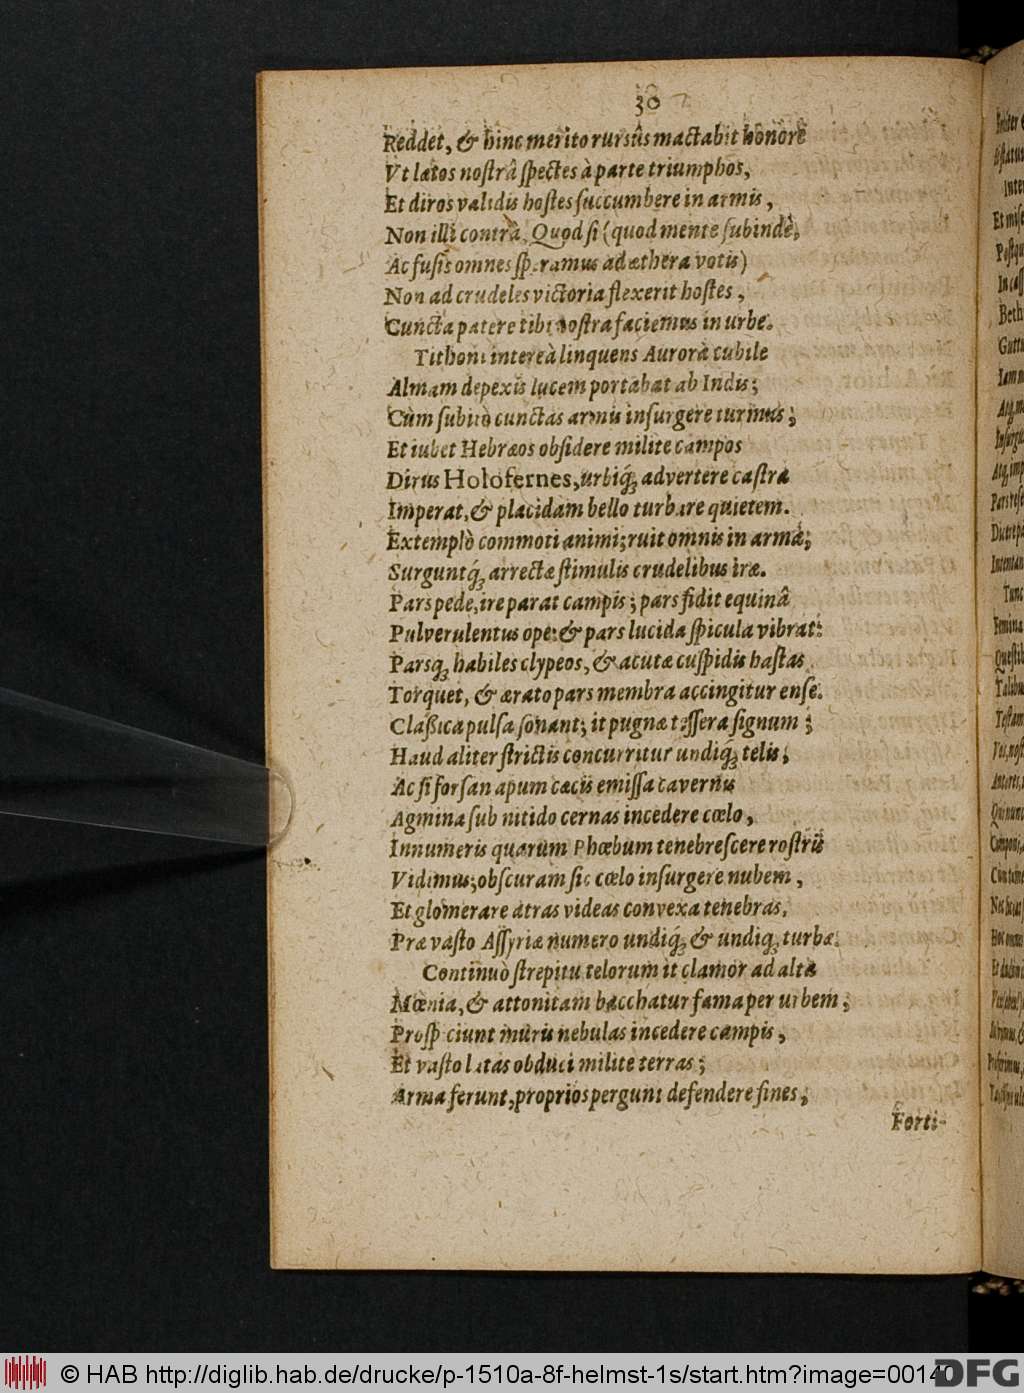 30
Reddet, & hinc merito rursùs mactabit honore
Vt lætos nostrâ spectes à parte triumphos,
Et diros validis hostes succumbere in armis,
Non illi contrà. Quod si (quod mente subindè,
Ac fusis omnes speramus ad æthera votis)
Non ad crudeles victoria flexerit hostes,
Cuncta patere tibi nostra faciemus in urbe.
Tithoni intereà linquens Aurorà cubile
Almam depexis lucem portabat ab Indis;
Cùm subitò cunctas armis insurgere turmas;
Et iubet Hebræos obsidere milite campos
Dirus Holofernes, urbiq́ꝫ advertere castra
Imperat, & placidam bello turbare quietem.
Extemplò commoti animi; ruit omnis in arma;
Surguntq́ꝫ arrectæ stimulis crudelibus iræ.
Pars pede, ire parat campis; pars fidit equinâ
Pulverulentus ope: & pars lucida spicula vibrat:
Parsqꝫ habiles clypeos, & acutæ cuspidis hastas
Torquet, & ærato pars membra accingitur ense.
Claßica pulsa sonant; it pugnæ tessera signum;
Haud aliter strictis concurritur undiq́ꝫ telis;
Ac si forsan apum cæcis emissa cavernis
Agmina sub nitido cernas incedere cœlo,
Innumeris quarum Phœbum tenebrescere rostris
Vidimus; obscuram sic cœlo insurgere nubem,
Et glomerare atras videas convexa tenebras,
Præ vasto Assyriæ numero undiq́ꝫ & undiqꝫ turbæ.
Continuò strepitu telorum it clamor ad alta
Mœnia, & attonitam bacchatur fama per urbem;
Prosp ciunt muris nebulas incedere campis,
Et vasto latas obduci milite terras;
Arma ferunt, proprios pergunt defendere fines,
Forti-
© HAB http://diglib.hab.de/drucke/p-1510a-8f-helmst-1s/start.htm?image=00140
DFG